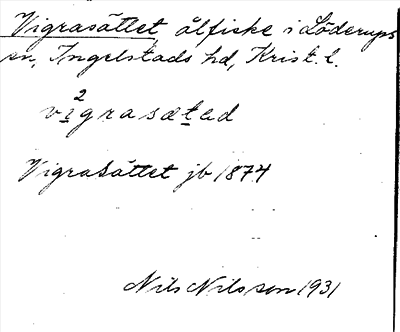 Vigrasättet, ålfiske i Löderups
sn, Ingelstads hd, Krist. l.
2
vigrasæted
Vigrasättet jb 1874
Nils Nilsson 1931